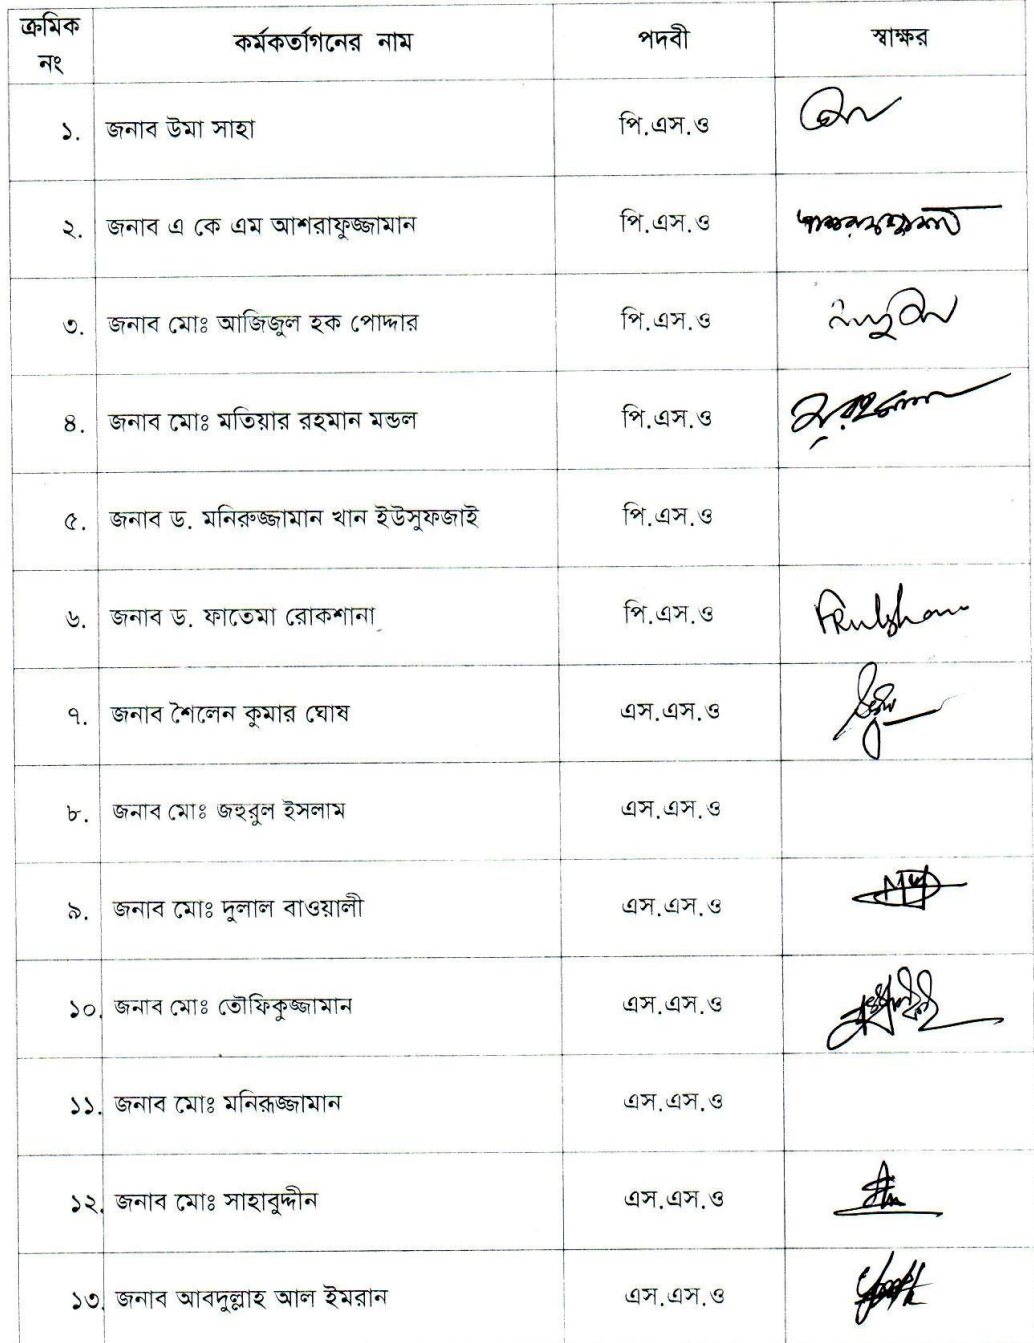 ক্রমিক নং কর্মকর্তাগনের নাম পদবী স্বাক্ষর
১. জনাব উমা সাহা পি.এস.ও
২. জনাব এ কে এম আশরাফুজ্জামান পি.এস.ও
৩. জনাব মোঃ আজিজুল হক পোদ্দার পি.এস.ও
৪. জনাব মোঃ মতিয়ার রহমান মন্ডল পি.এস.ও
৫. জনাব ড. মনিরুজ্জামান খান ইউসুফজাই পি.এস.ও
৬. জনাব ড. ফাতেমা রোকশানা পি.এস.ও
৭. জনাব শৈলেন কুমার ঘোষ এস.এস.ও
৮. জনাব মোঃ জহুরুল ইসলাম এস.এস.ও
৯. জনাব মোঃ দুলাল বাওয়ালী এস.এস.ও
১০. জনাব মোঃ তৌফিকুজ্জামান এস.এস.ও
১১. জনাব মোঃ মনিরূজ্জামান এস.এস.ও
১২. জনাব মোঃ সাহাবুদ্দীন এস.এস.ও
১৩. জনাব আবদুল্লাহ আল ইমরান এস.এস.ও